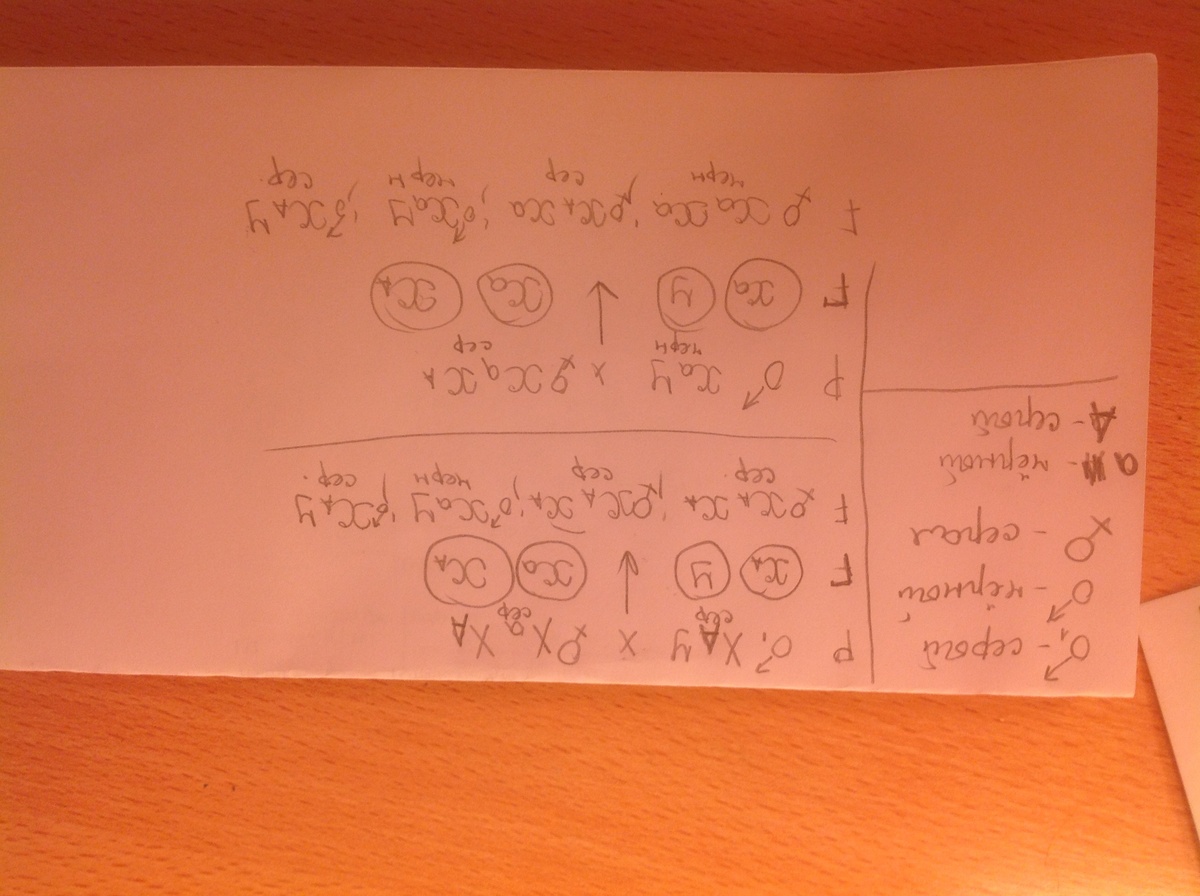 ♂₁ - серый
♂ - чёрный
♀ - серая
a - чёрный
A - серый
P ♂₁ XAY × ♀XaXA
сер сер
Г XA Y → Xa XA
F ♀XAXA; ♀XAXA; ♂XaY; ♂XAY
сер сер черн сер.
P ♂ XaY × ♀XaXA
черн сер
Г Xa Y → Xa XA
F ♀XaXa; ♀XAXa; ♂XaY; ♂XAY
черн сер черн сер.